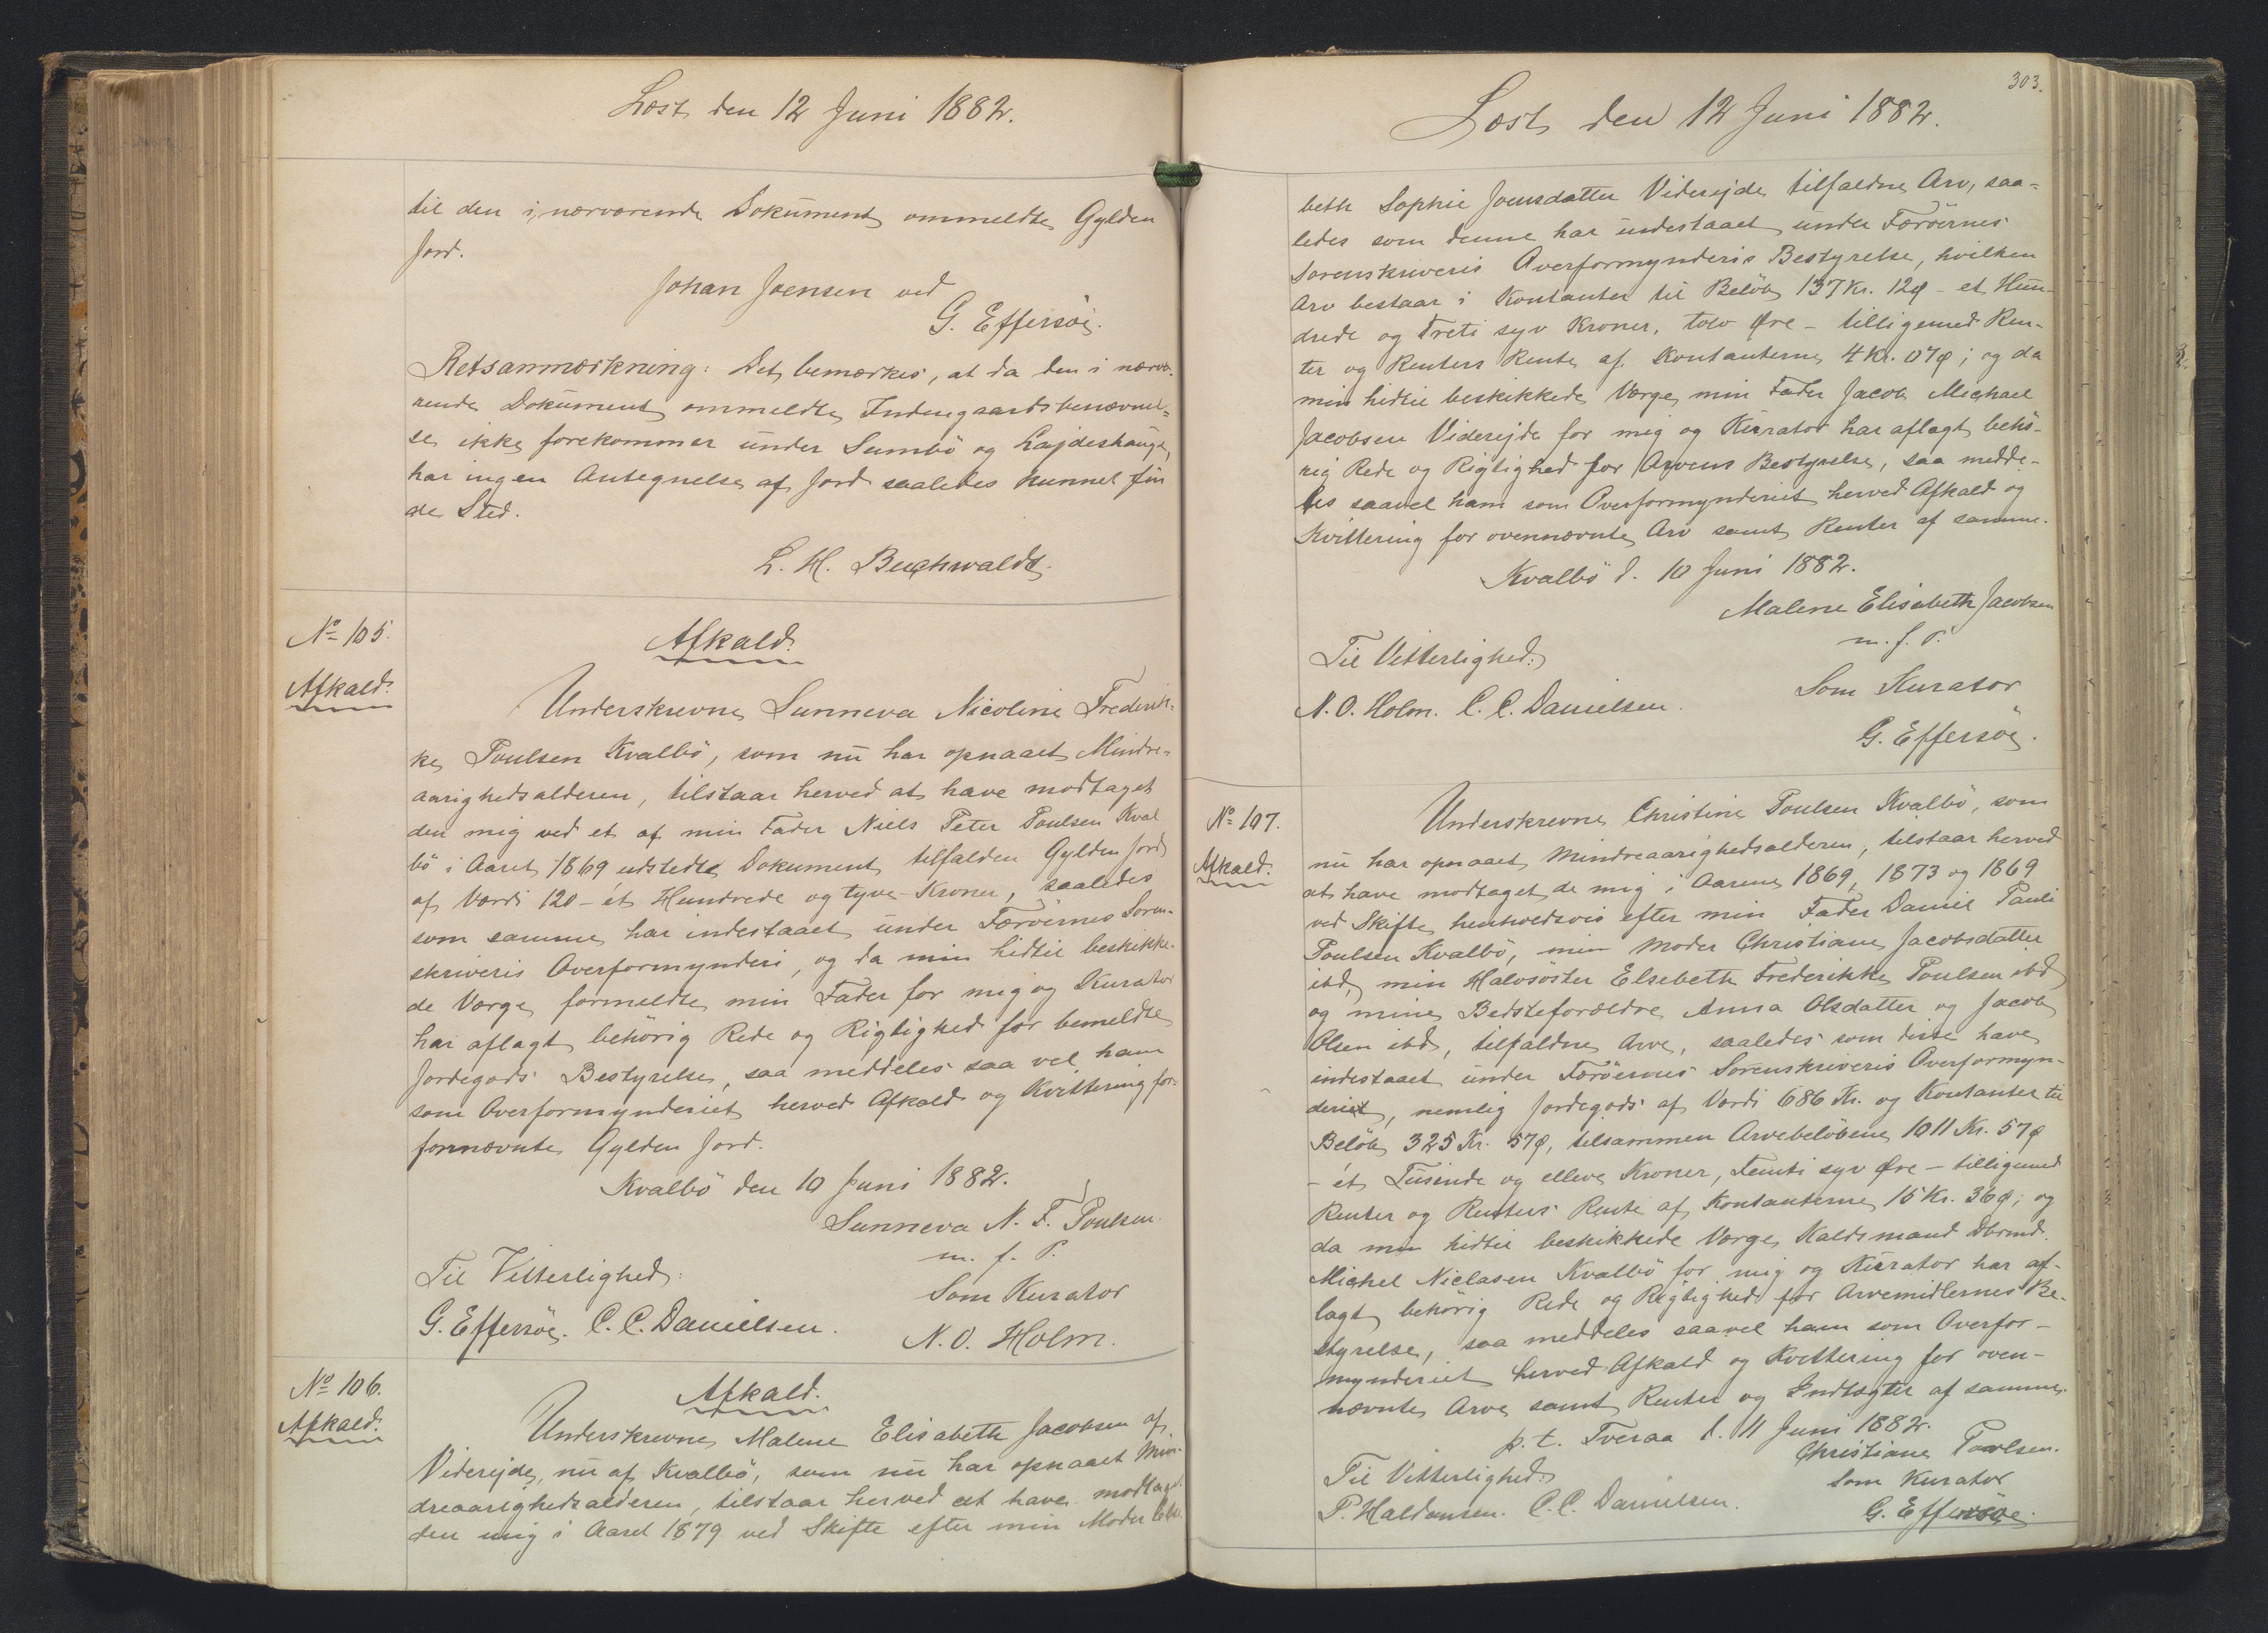 Læst den 12 Juni 1882.
til den i nærværende Dokument ommeldte Gylden
Jord.
Johan Joensen ved
G. Effersöe.
Retsanmærkning: Det bemærkes, at da den i nærvæ-
rende Dokument ommeldte Indengaardsbenævnel-
se ikke forekommer under Sumbö og Lajdeshauge,
har ingen Antegnelse af Jord saaledes kunnet fin
de Sted.
L. H. Buchwaldt.
No 105.
Afkald.
Afkald.
Underskrevne Sunneva Nicoline Frederik-
ke Poulsen Kvalbö, som nu har opnaaet Mindre-
aarighedsalderen, tilstaar herved at have modtaget
den mig ved et af min Fader Niels Peter Poulsen Kval
bö i Aaret 1869 udstedte Dokument tilfalden Gylden Jord
af Værdi 120 - ét Hundrede og tyve - Kroner, saaledes
som samme har indestaaet under Færöernes Soren-
skriveris Overformynderi, og da min hidtil beskikke-
de Værge formeldte min Fader for mig og Kurator
har aflagt behörig Rede og Rigtighed for bemeldte
Jordegods Bestyrelse, saa meddeles saa vel ham
som Overformynderiet herved Afkald og Kvittering for
fornævnte Gylden Jord.
Kvalbö den 10 Juni 1882.
Sunneva N. F. Poulsen
m. f. P.
Til Vitterlighed:
Som Kurator
G. Effersöe. C. C. Danielsen.
N. O. Holm.
No 106.
Afkald.
Afkald.
Underskrevne Malene Elisabeth Jacobsen af
Viderejde, nu af Kvalbö, som nu har opnaaet Min-
dreaarighedsalderen, tilstaar herved at have modtaget
den mig i Aaret 1879 ved Skifte efter min Moder Elsa-
303.
Læst den 12 Juni 1882.
beth Sophie Joensdatter Viderejde tilfaldne Arv, saa-
ledes som denne har indestaaet under Færöernes
Sorenskriveris Overformynderis Bestyrelse, hvilken
Arv bestaar i Kontanter til Belöb 137 Kr. 12 Ø - et Hun-
drede og Treti syv Kroner, tolv Øre - tilligemed Ren-
ter og Renters Rente af Kontanterne 4 Kr. 07 Ø; og da
min hidtil beskikkede Værge min Fader Jacob Michael
Jacobsen Viderejde for mig og Kurator har aflagt behö-
rig Rede og Rigtighed for Arvens Bestyrelse, saa medde-
les saavel ham som Overformynderiet herved Afkald og
Kvittering for ovennævnte Arv samt Renter af samme.
Kvalbö d. 10 Juni 1882.
Malene Elisabeth Jacobsen
m. f. P.
Til Vitterlighed:
Som Kurator
N. O. Holm. C. C. Danielsen.
G. Effersöe.
No 107.
Afkald.
Underskrevne Christine Poulsen Kvalbö, som
nu har opnaaet Mindreaarighedsalderen, tilstaar herved
at have modtaget de mig i Aarene 1869, 1873 og 1869
ved Skifte henholdsvis efter min Fader Daniel Pauli
Poulsen Kvalbö, min Moder Christiane Jacobsdatter
ibd, min Halvsöster Elsebeth Frederikke Poulsen ibd
og mine Bedsteforældre Anna Olsdatter og Jacob
Olsen ibd, tilfaldne Arve, saaledes som disse have
indestaaet under Færöernes Sorenskriveris Overformyn-
deriet, nemlig Jordegods af Værdi 686 Kr. og Kontanter til
Belöb 325 Kr. 57 Ø, tilsammen Arvebelöbene 1011 Kr. 57 Ø
- ét Tusinde og elleve Kroner, Femti syv Øre - tilligemed
Renter og Renters Rente af Kontanterne 15 Kr. 36 Ø; og
da min hidtil beskikkede Værge Kaldsmand Dbrmd.
Michel Niclasen Kvalbö for mig og Kurator har af-
lagt behörig Rede og Rigtighed for Arvemidlernes Be-
styrelse, saa meddeles saavel ham som Overfor-
mynderiet herved Afkald og Kvittering for oven-
nævnte Arve samt Renter og Indtægter af samme.
p. t. Tveraa d. 11 Juni 1882.
Christiane Poulsen.
Til Vitterlighed:
Som Kurator
P. Haldansen. C. C. Danielsen.
G. Effersöe.